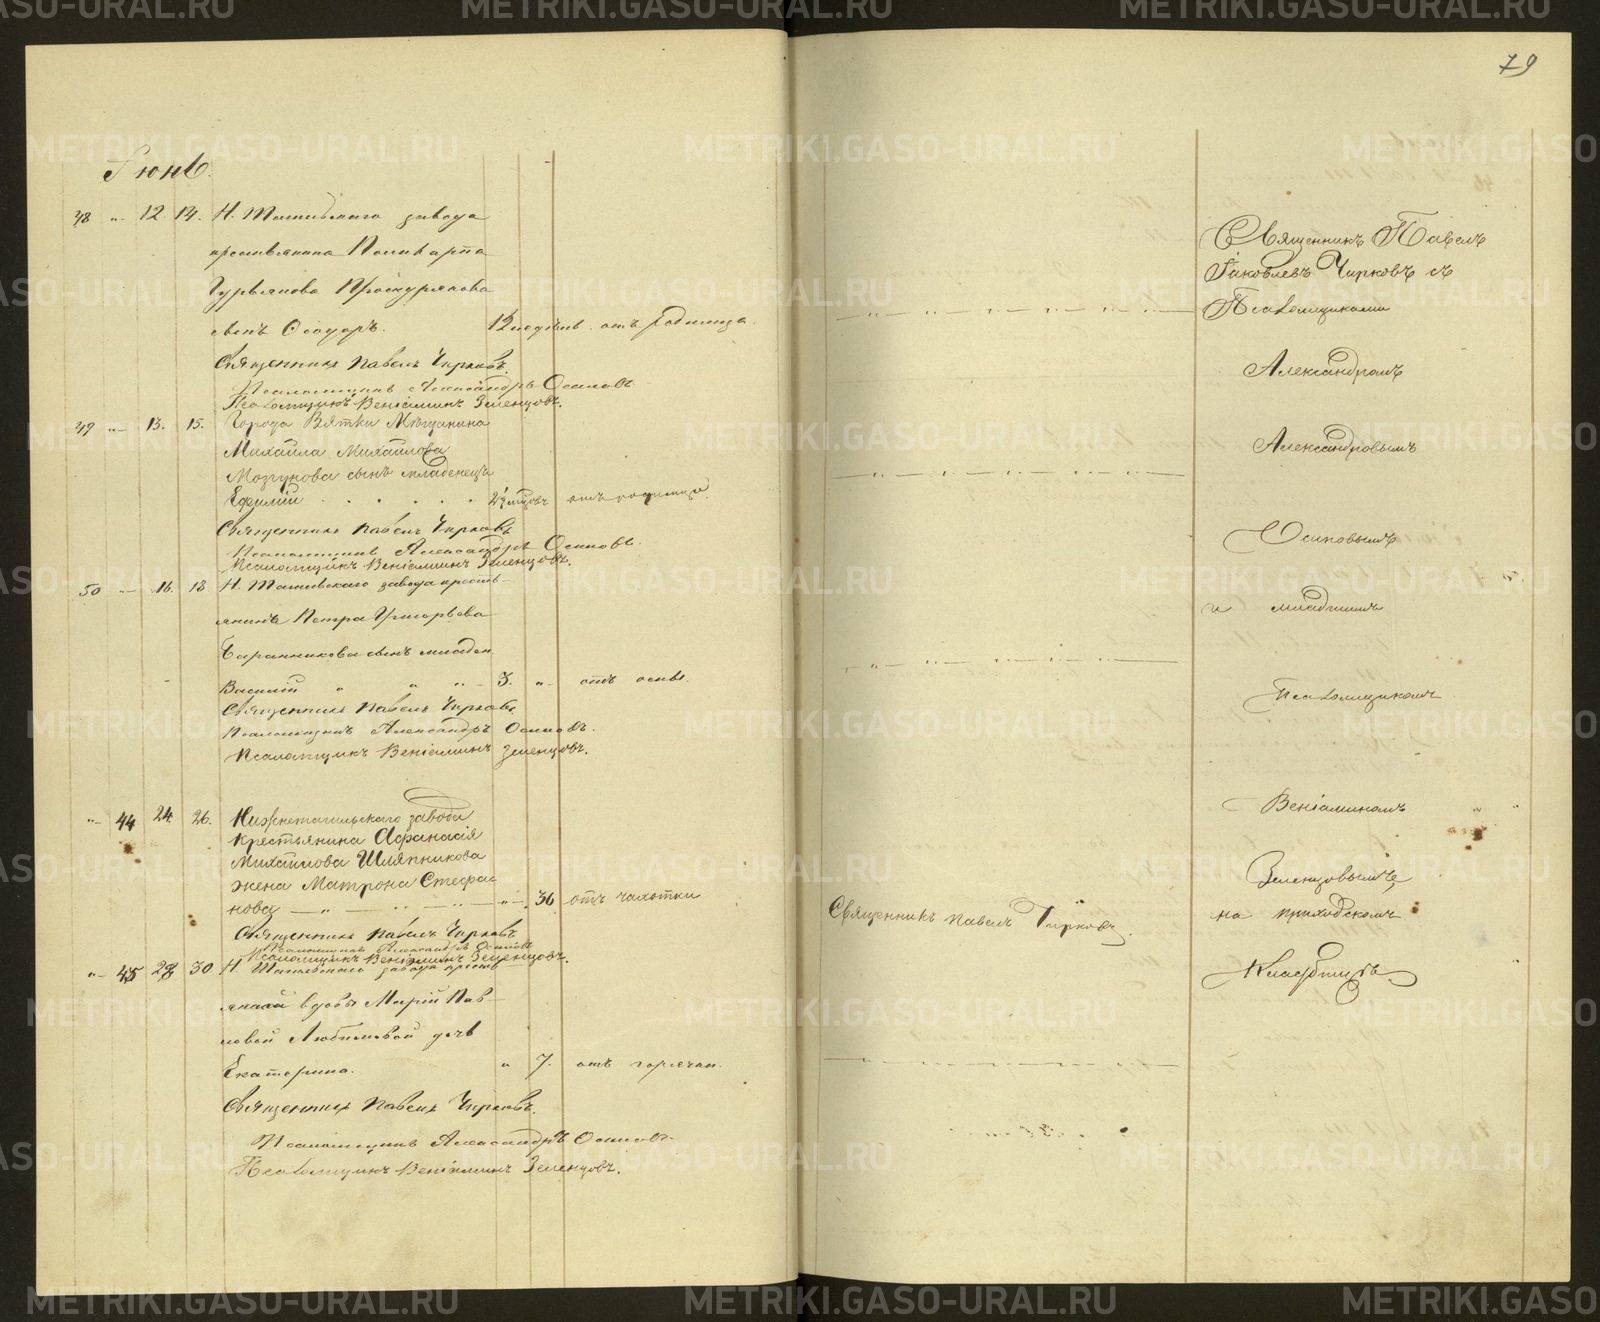 79
Іюнь.
48 " 12 14. Н. Тагильскаго завода
крестьянина Поликарпа
Гурьянова Проскурякова
сынъ Ѳеодоръ. 12 недѣль. отъ родимца.
Священникъ Павелъ Чирковъ.
Псаломщикъ Александръ Осиповъ
Псаломщикъ Веніаминъ Зеленцовъ.
49 " 13. 15. Города Вятки Мѣщанина
Михаила Михайлова
Моргунова сынъ младенецъ
2½ мѣсяц. отъ родимца.
Священникъ Павелъ Чирковъ
Псаломщикъ Александръ Осиповъ.
Псаломщикъ Веніаминъ Зеленцовъ.
50 " 16. 18. Н. Тагильскаго завода кресть-
янина Петра Григорьева
Баранникова сынъ младен.
Василій " " " 3. " отъ оспы.
Священникъ Павелъ Чирковъ
Псаломщикъ Александръ Осиповъ.
Псаломщикъ Веніаминъ Зеленцовъ.
" 44 24. 26. Нижнетагильскаго завода
крестьянина Аѳанасія
Михайлова Шляпникова
жена Матрона Стефа-
нова — " — " — " — " 36 отъ чахотки
Священникъ Павелъ Чирковъ
Псаломщикъ Александръ Осиповъ
Псаломщикъ Веніаминъ Зеленцовъ.
" 45 28 30. Н. Тагильскаго завода кресть-
янской вдовы Маріи Пав-
ловой Любимовой дочь
Екатерина. " 7. отъ горячки.
Священникъ Павелъ Чирковъ.
Псаломщикъ Александръ Осиповъ.
Псаломщикъ Веніаминъ Зеленцовъ.
Священникъ Павелъ Чирковъ.
Священникъ Павелъ
Іаковлевъ Чирковъ съ
Псаломщиками
Александромъ
Александровымъ
Осиповымъ
и младшимъ
Псаломщикомъ
Веніаминомъ
Зеленцовымъ
на приходскомъ
Кладбищѣ
METRIKI.GASO-URAL.RU